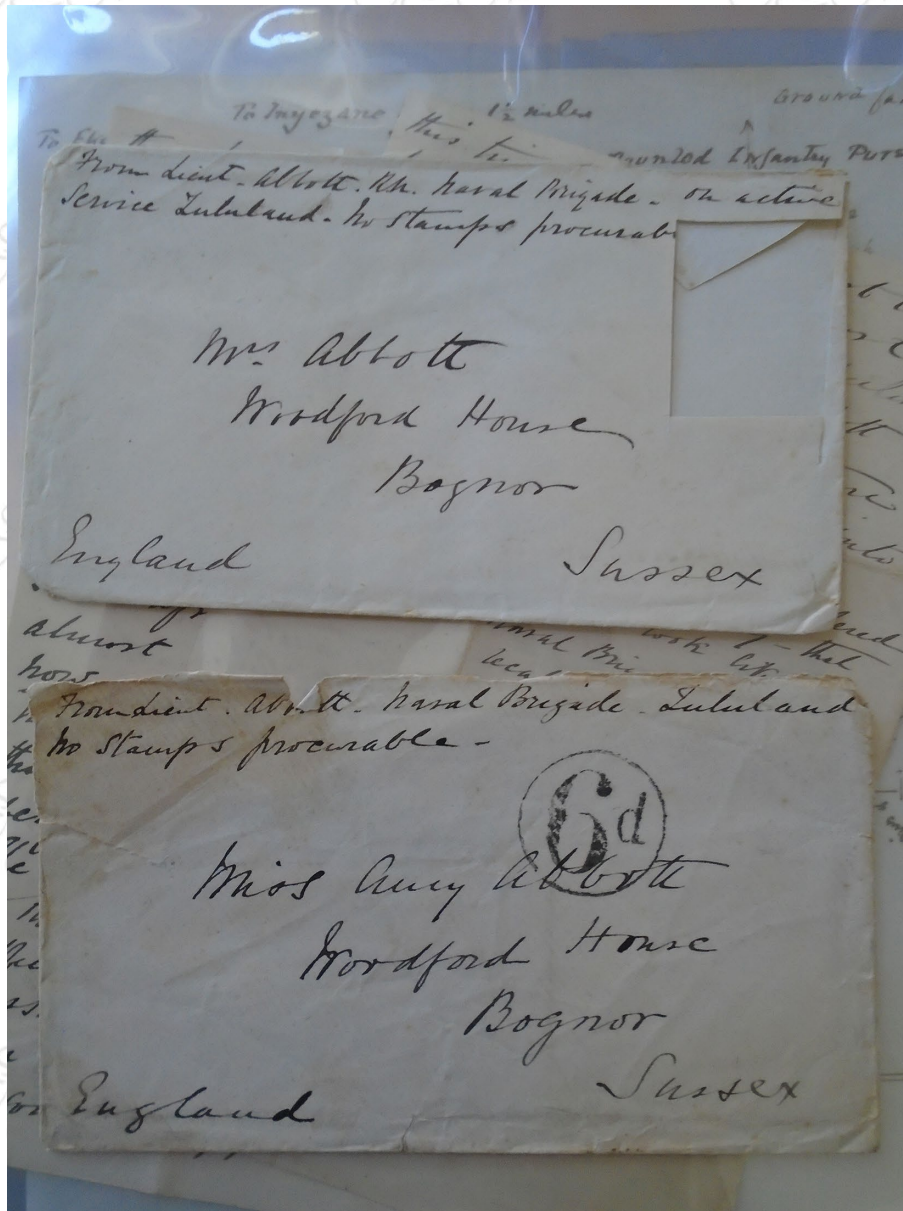 To Inyezane
1½ miles
Ground
To
this
Mounted Infantry
From Lieut. Abbott. RN. Naval Brigade - on active
Service Zululand - No Stamps procurab
Mrs Abbott
Woodford House
Bognor
England
Sussex
almost
now
that
into
Naval
look
From Lieut. Abbott. Naval Brigade. Zululand
No Stamps procurable -
6d
Miss Amy Abbott
Woodford House
Bognor
Sussex
England